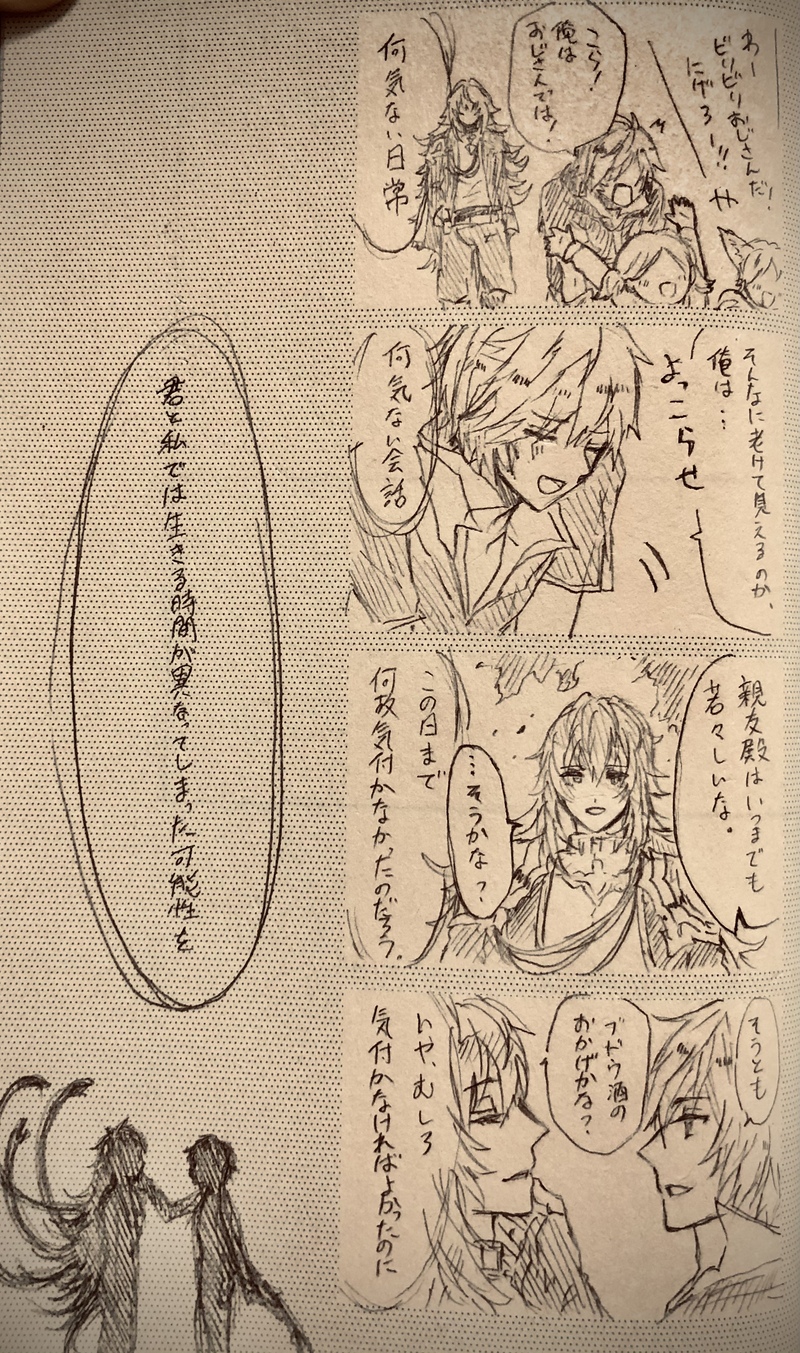 わー
ビリビリおじさんだ!
にげろー!!
こら!
俺は
おじさんでは!
何気ない日常
そんなに老けて見えるのか、
俺は…
よっこらせ
何気ない会話
親友殿はいつまでも
若々しいな。
…そうかな?
この日まで
何故気付かなかったのだろう。
そうとも
ブドウ酒の
おかげかな?
いや、むしろ
気付かなければよかったのに
君と私では生きる時間が異なってしまった可能性を